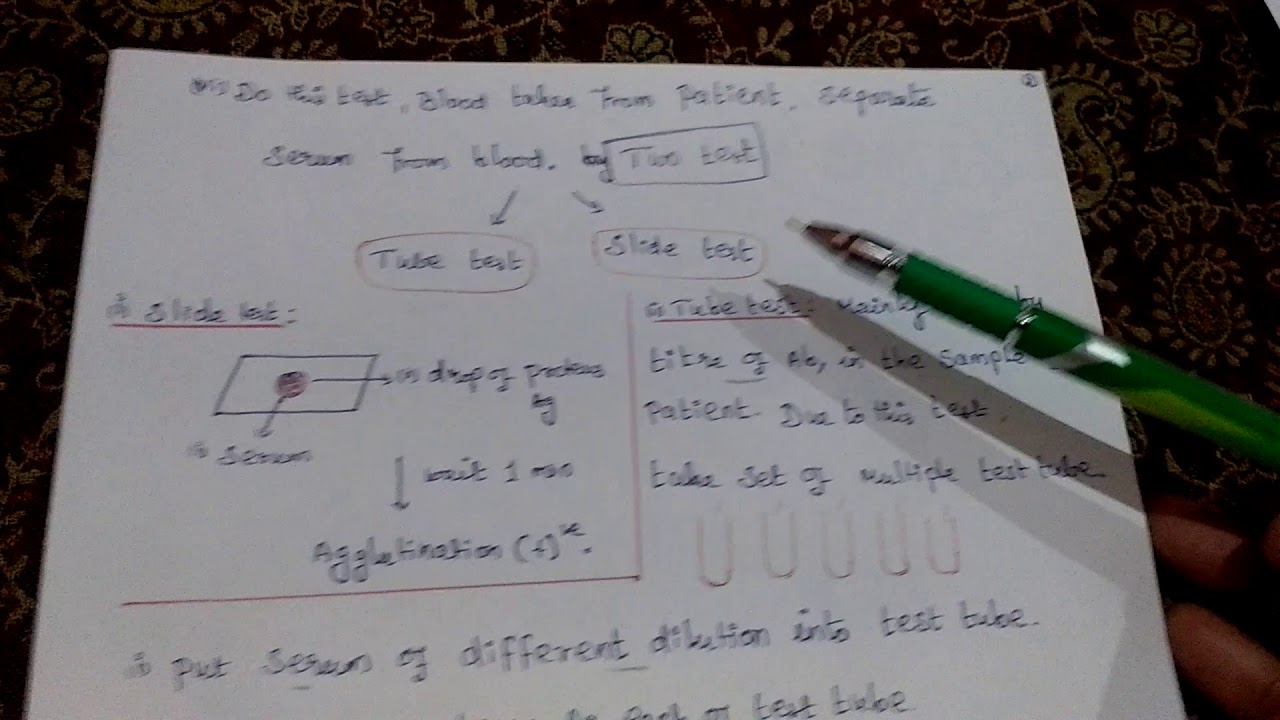 ②
Do this test, Blood taken from Patient, separate
Serum from blood. by Two test
Tube test
Slide test
Slide test:
drop of proteus
Ag
Serum
wait 1 min
Agglutination (+)ve.
Tube test: Mainly by
titre of Ab, in the sample
Patient. Due to this test,
take set of multiple test tube.
Put serum of different dilution into test tube.
test tube.